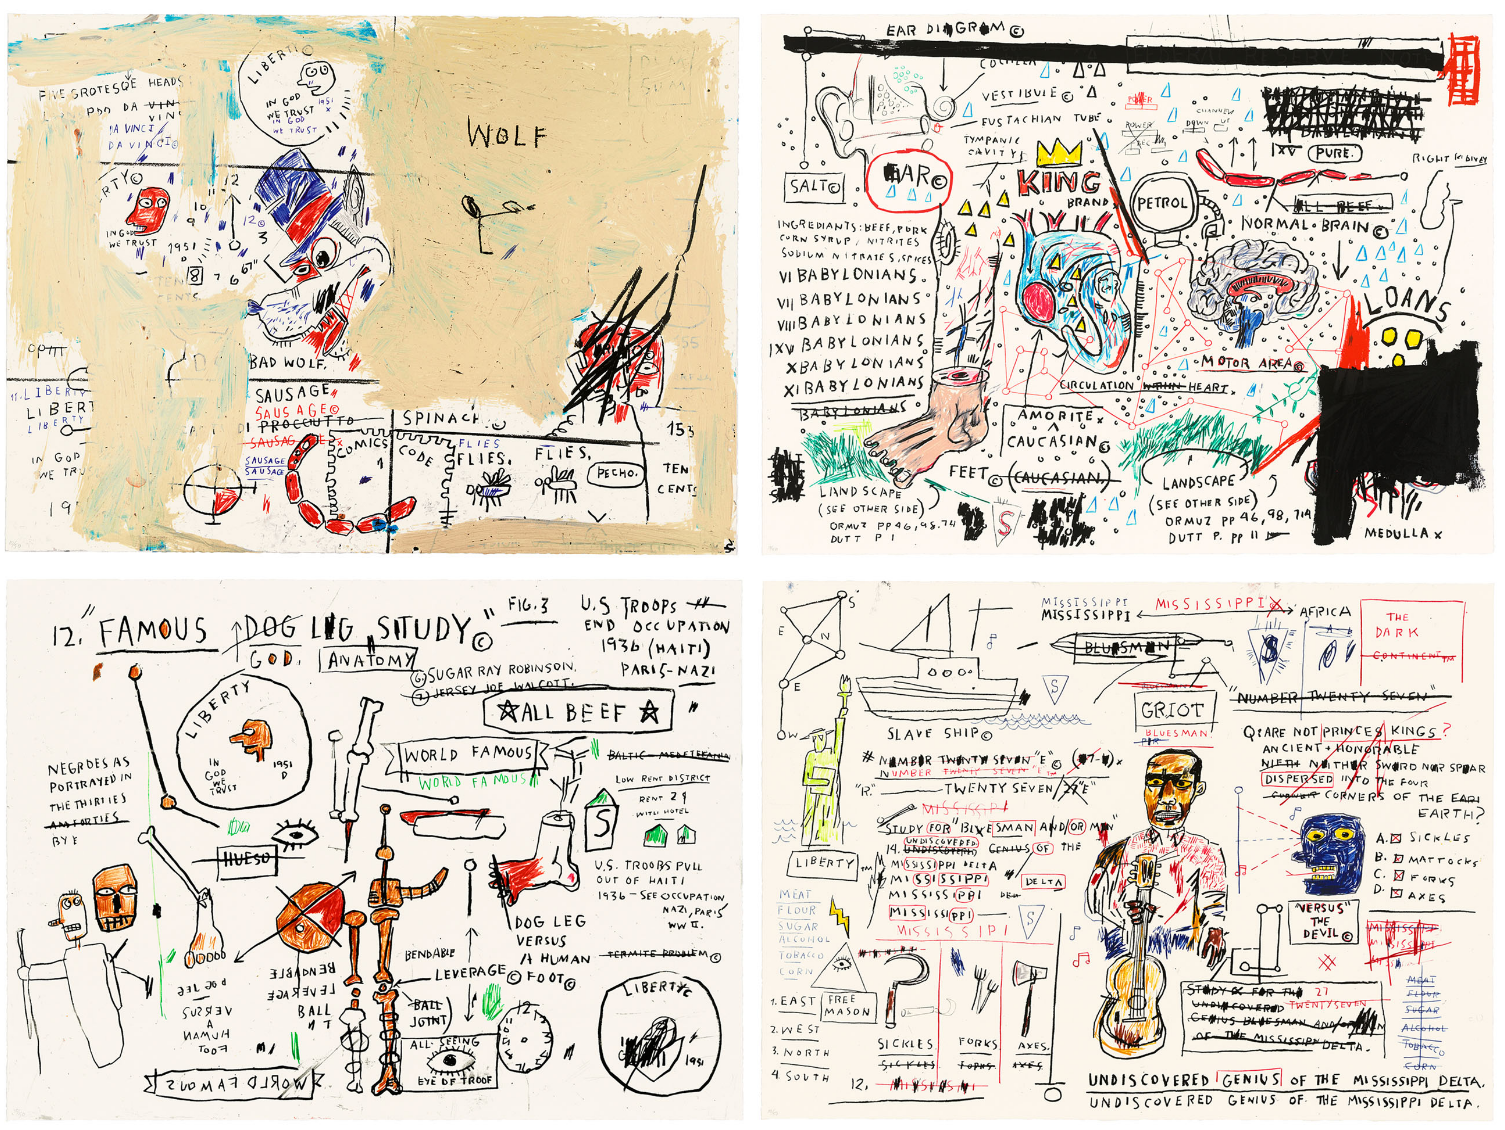 LIBERTY©
FIVE GROTESQUE HEADS
DA VIN
VINC
DA VINCI
DA VINCI©
IN GOD
WE TRUST
IN GOD
WE TRUST
1951
WOLF
RTY©
IN GOD
WE TRUST
1951
12
10
9
12©
3
8
7 6
TEN
CENTS.
BAD WOLF.
LIBERTY
LIBERT
LIBERTY
IN GOD
WE TRU
19
SAUSAGE
SAUSAGE©
PROCCUTTO
SAUSAGE
SAUSAGE
SAUSAGE
COMICS
CODE
SPINACH.©
FLIES
FLIES.
FLIES.
PECHO.
153
TEN
CENTS
EAR DIAGRAM©
COCHLEA
VESTIBULE©
EUSTACHIAN TUBE
TYMPANIC
CAVITY
SALT©
EAR©
KING
BRAND
POWER
POWER
CHANNEL
DOWN UP
PETROL
IXV PURE.
ALL BEEF
RIGHT KIDNEY
NORMAL BRAIN©
LOANS
INGREDIANTS: BEEF, PORK
CORN SYRUP, NITRITES
SODIUM NITRATES, SPICES
VI BABYLONIANS.
VII BABYLONIANS
VIII BABYLONIANS
IXV BABYLONIANS
X BABYLONIANS
XI BABYLONIANS
BABYLONIANS
MOTOR AREA©
CIRCULATION WITHIN HEART.
AMORITE
CAUCASIAN©
FEET© (CAUCASIAN.)
LANDSCAPE
(SEE OTHER SIDE)
ORMUZ PP 46, 98, 74
DUTT P 1
S
LANDSCAPE
(SEE OTHER SIDE)
ORMUZ PP 46, 98, 714
DUTT P. PP 11
MEDULLA X
12. "FAMOUS DOG LEG STUDY"©
GOD. ANATOMY
FIG. 3
U.S TROOPS
END OCCUPATION
1936 (HAITI)
PARIS-NAZI
6 SUGAR RAY ROBINSON.
7 JERSEY JOE WALCOTT.
ALL BEEF
LIBERTY
IN
GOD
WE
TRUST
1951
D
WORLD FAMOUS
WORLD FAMOUS
LOW RENT DISTRICT
RENT 29
WITH HOTEL
S
NEGROES AS
PORTRAYED IN
THE THIRTIES
AM FORTIES
BY E
HUESO
U.S. TROOPS PULL
OUT OF HAITI
1936 - SEE OCCUPATION
NAZI, PARIS
WW II.
DOG LEG
VERSUS
A HUMAN
FOOT©
TERMITE PROBLEM©
BENDABLE
LEVERAGE©
BALL
JOINT
BENDABLE
LEVERAGE
BALL
DOG LEG
VERSUS
A
HUMAN
FOOT
WORLD FAMOUS
ALL-SEEING
EYE OF TROOF
12
LIBERTY©
1951
S
E
N
E
W
SLAVE SHIP©
MISSISSIPPI
MISSISSIPPI
MISSISSIPPI
AFRICA
BLUESMAN
S
THE
DARK
CONTINENT
GRIOT
BLUESMAN
"NUMBER TWENTY SEVEN"
# NUMBER TWENTY SEVEN "E"© (#7-V)
NUMBER TWENTY SEVEN "E"
"R" TWENTY SEVEN "E"
MISSISSIPI
STUDY FOR "BLUESMAN AND/OR MAN"
UNDISCOVERED
14. UNDISCOVERED GENIUS OF THE
MISSISSIPPI DELTA
MISSISSIPPI
MISSISSIPPI
MISSISSIPPI
MISSISSIPI
DELTA
Q: ARE NOT PRINCES KINGS?
ANCIENT + HONORABLE
NIETH NEITHER SWORD NOR SPEAR
DISPERSED INTO THE FOUR
CORNER CORNERS OF THE EARI
EARTH?
A. SICKLES
B. MATTOCKS
C. FORKS
D. AXES
LIBERTY
MEAT
FLOUR
SUGAR
ALCOHOL
TOBACCO
CORN
FREE
MASON
1. EAST
2. WEST
3. NORTH
4. SOUTH
SICKLES
SICKLES
FORKS
FORKS
AXES.
AXES
12. MISSISSIPPI
"VERSUS"
THE
DEVIL©
MISSISSIPPI
MEAT
FLOUR
SUGAR
ALCOHOL
TOBACCO
CORN
STUDY FOR THE 27
UNDISCOVERED TWENTY SEVEN
GENIUS BLUESMAN AND/OR MAN
OF THE MISSISSIPPI DELTA.
UNDISCOVERED GENIUS OF THE MISSISSIPPI DELTA.
UNDISCOVERED GENIUS OF THE MISSISSIPPI DELTA.